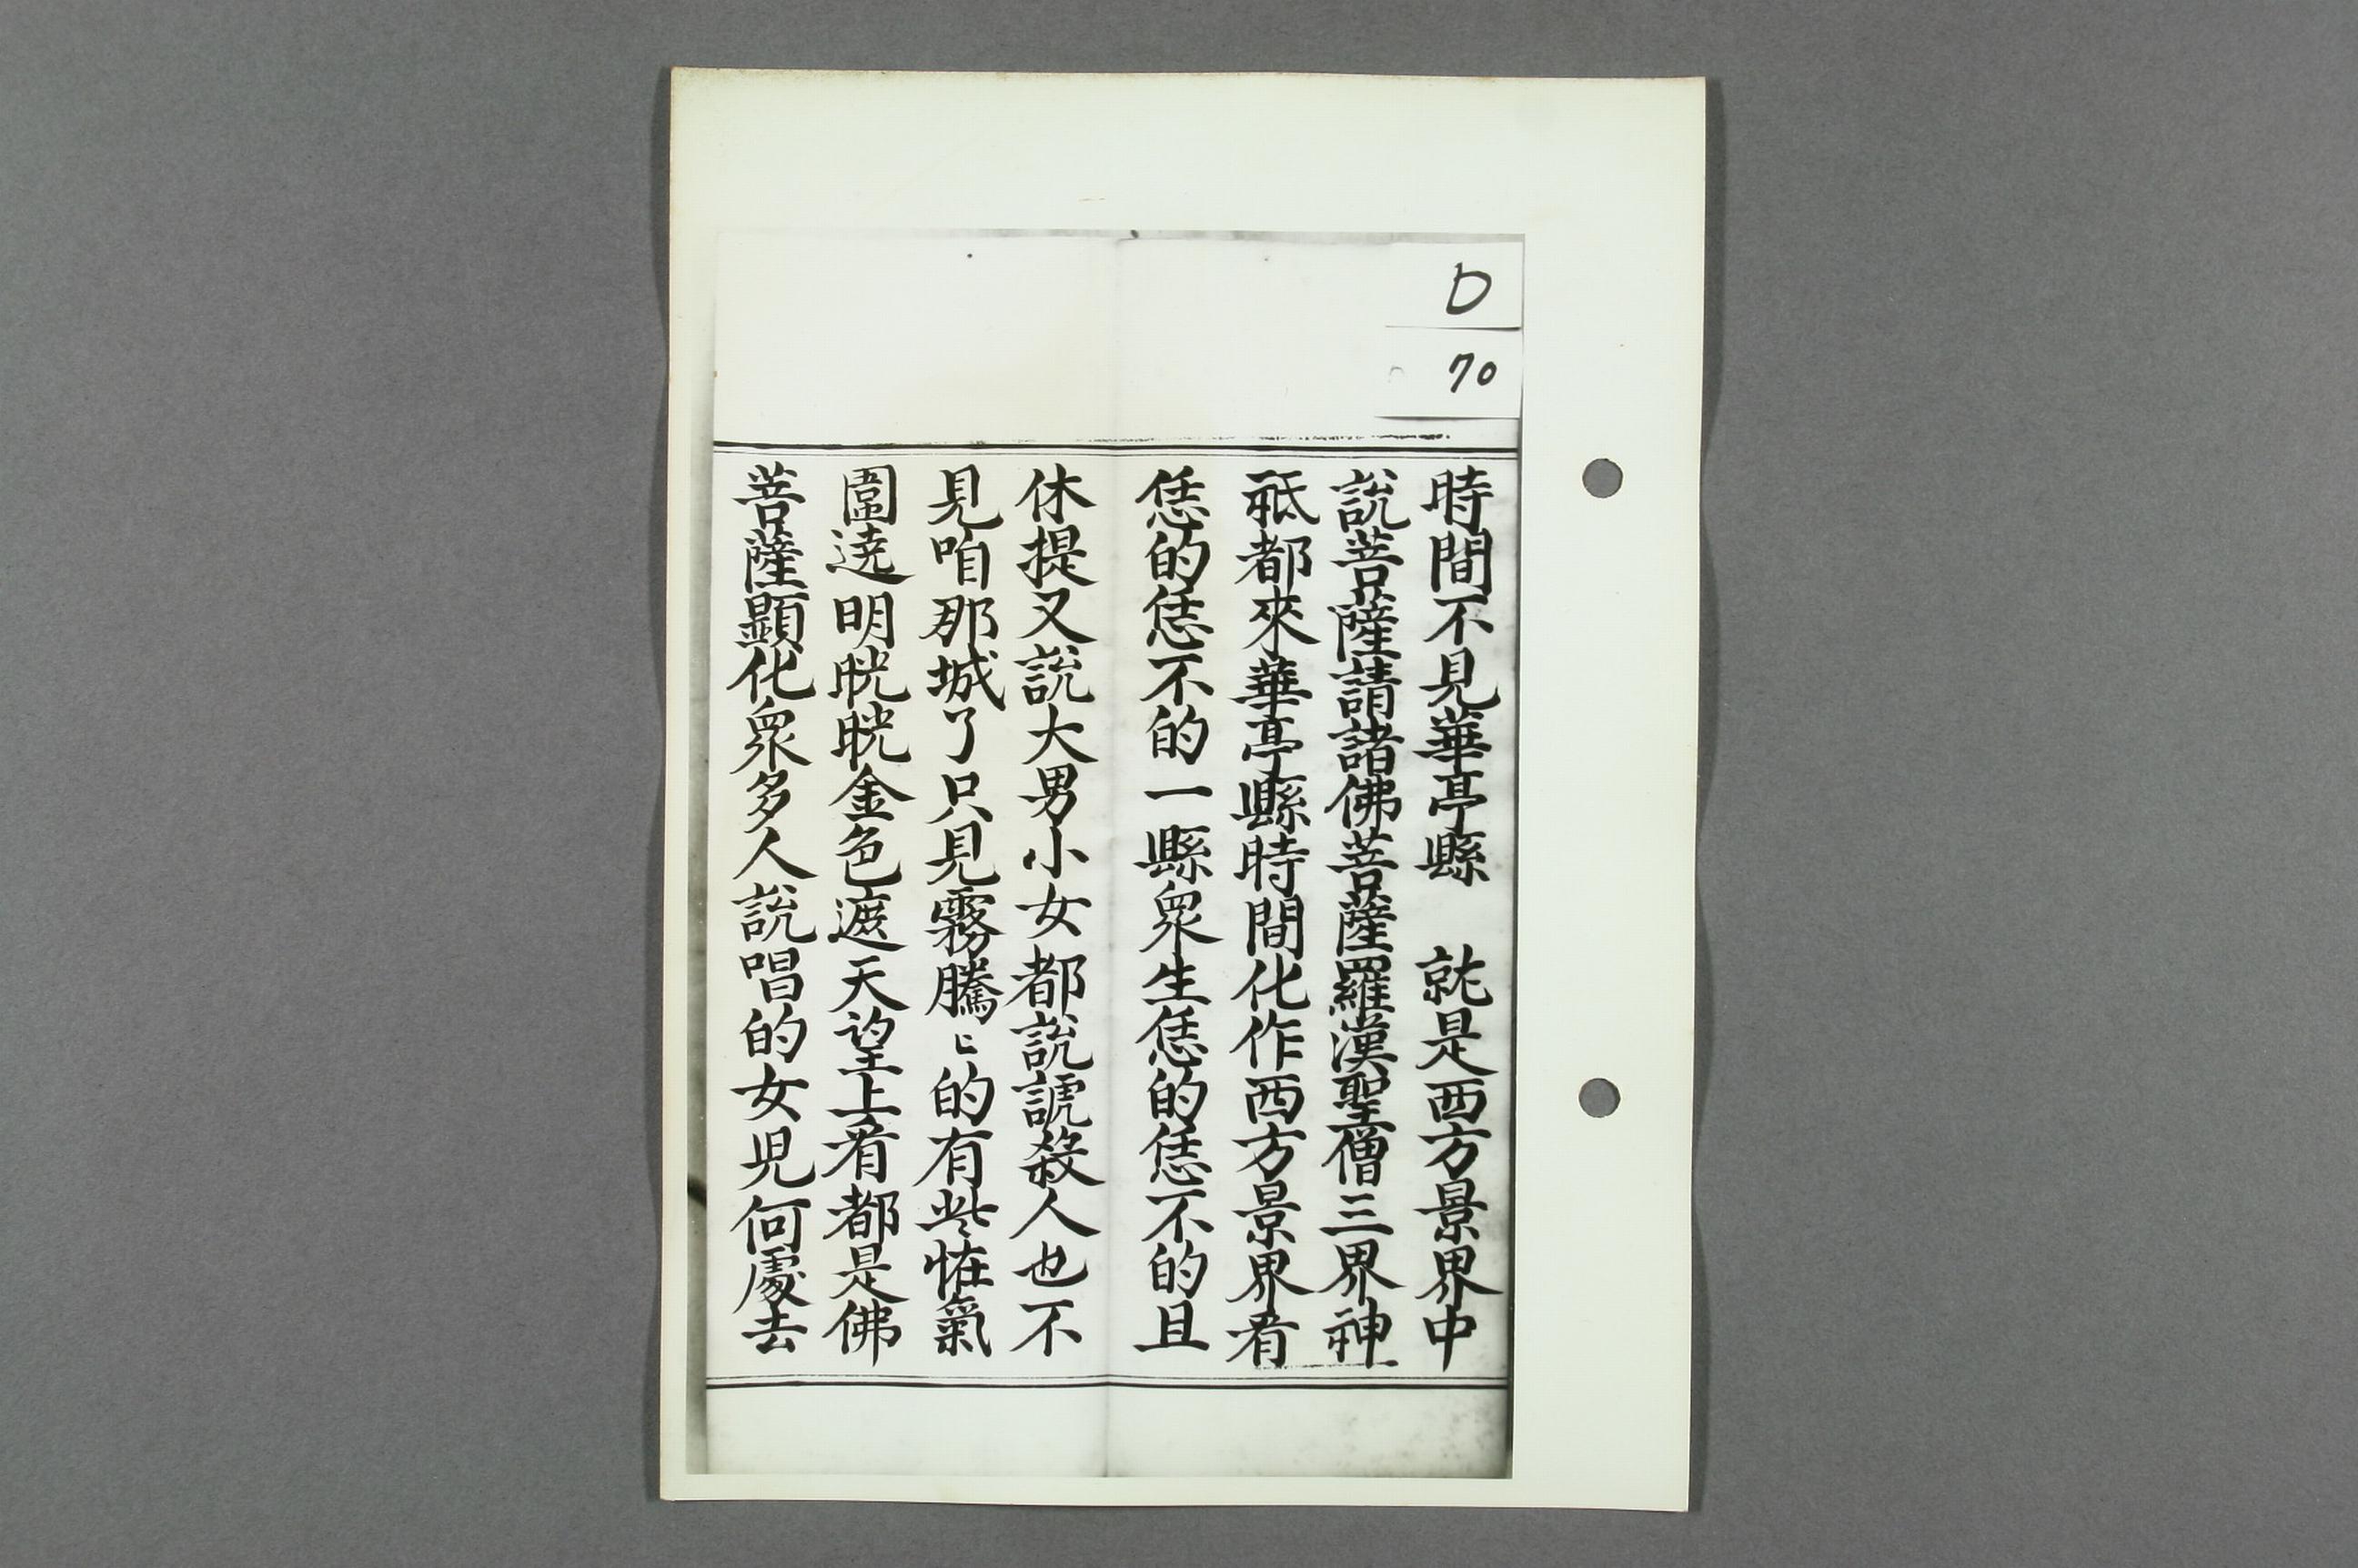 D
70
時間不見華亭縣　就是西方景界中
說菩薩請諸佛菩薩羅漢聖僧三界神
祇都來華亭縣時間化作西方景界看
恁的恁不的一縣衆生恁的恁不的且
休提又說大男小女都說諕殺人也不
見咱那城了只見霧騰〻的有些恠氣
圍遶明晄晄金色遮天望上看都是佛
菩薩顯化衆多人說唱的女児何處去